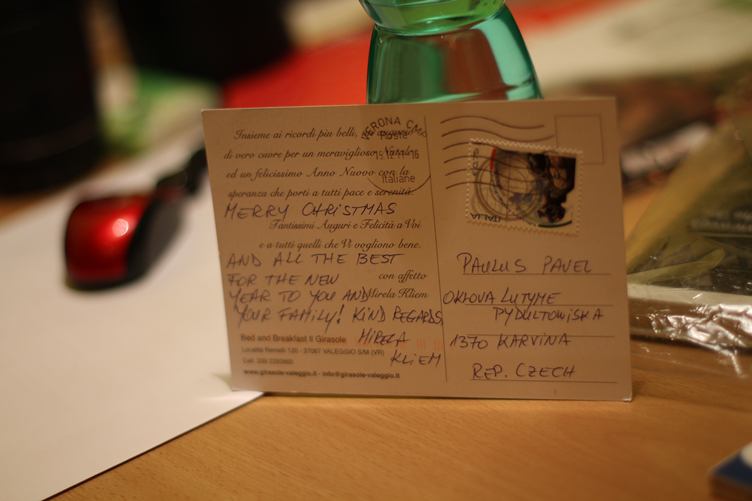 Insieme ai ricordi piu belli,
di vero cuore per un meraviglioso Natale
ed un felicissimo Anno Nuovo con la
speranza che porti a tutti pace e serenità.
MERRY CHRISTMAS
Tantissimi Auguri e Felicità a Voi
e a tutti quelli che Vi vogliono bene.
AND ALL THE BEST
con affetto
FOR THE NEW
YEAR TO YOU AND Mirela Kliem
YOUR FAMILY! KIND REGARDS
MIRELA
KLIEM
Bed and Breakfast Il Girasole
37067 VALEGGIO S/M (VR)
www.girasole-valeggio.it - info@girasole-valeggio.it
VERONA CMP
Poste
Italiane
ITALIA
PAULUS PAVEL
OKLOVA LUTYME
PYDULTOWISKA
1370 KARVINA
REP. CZECH